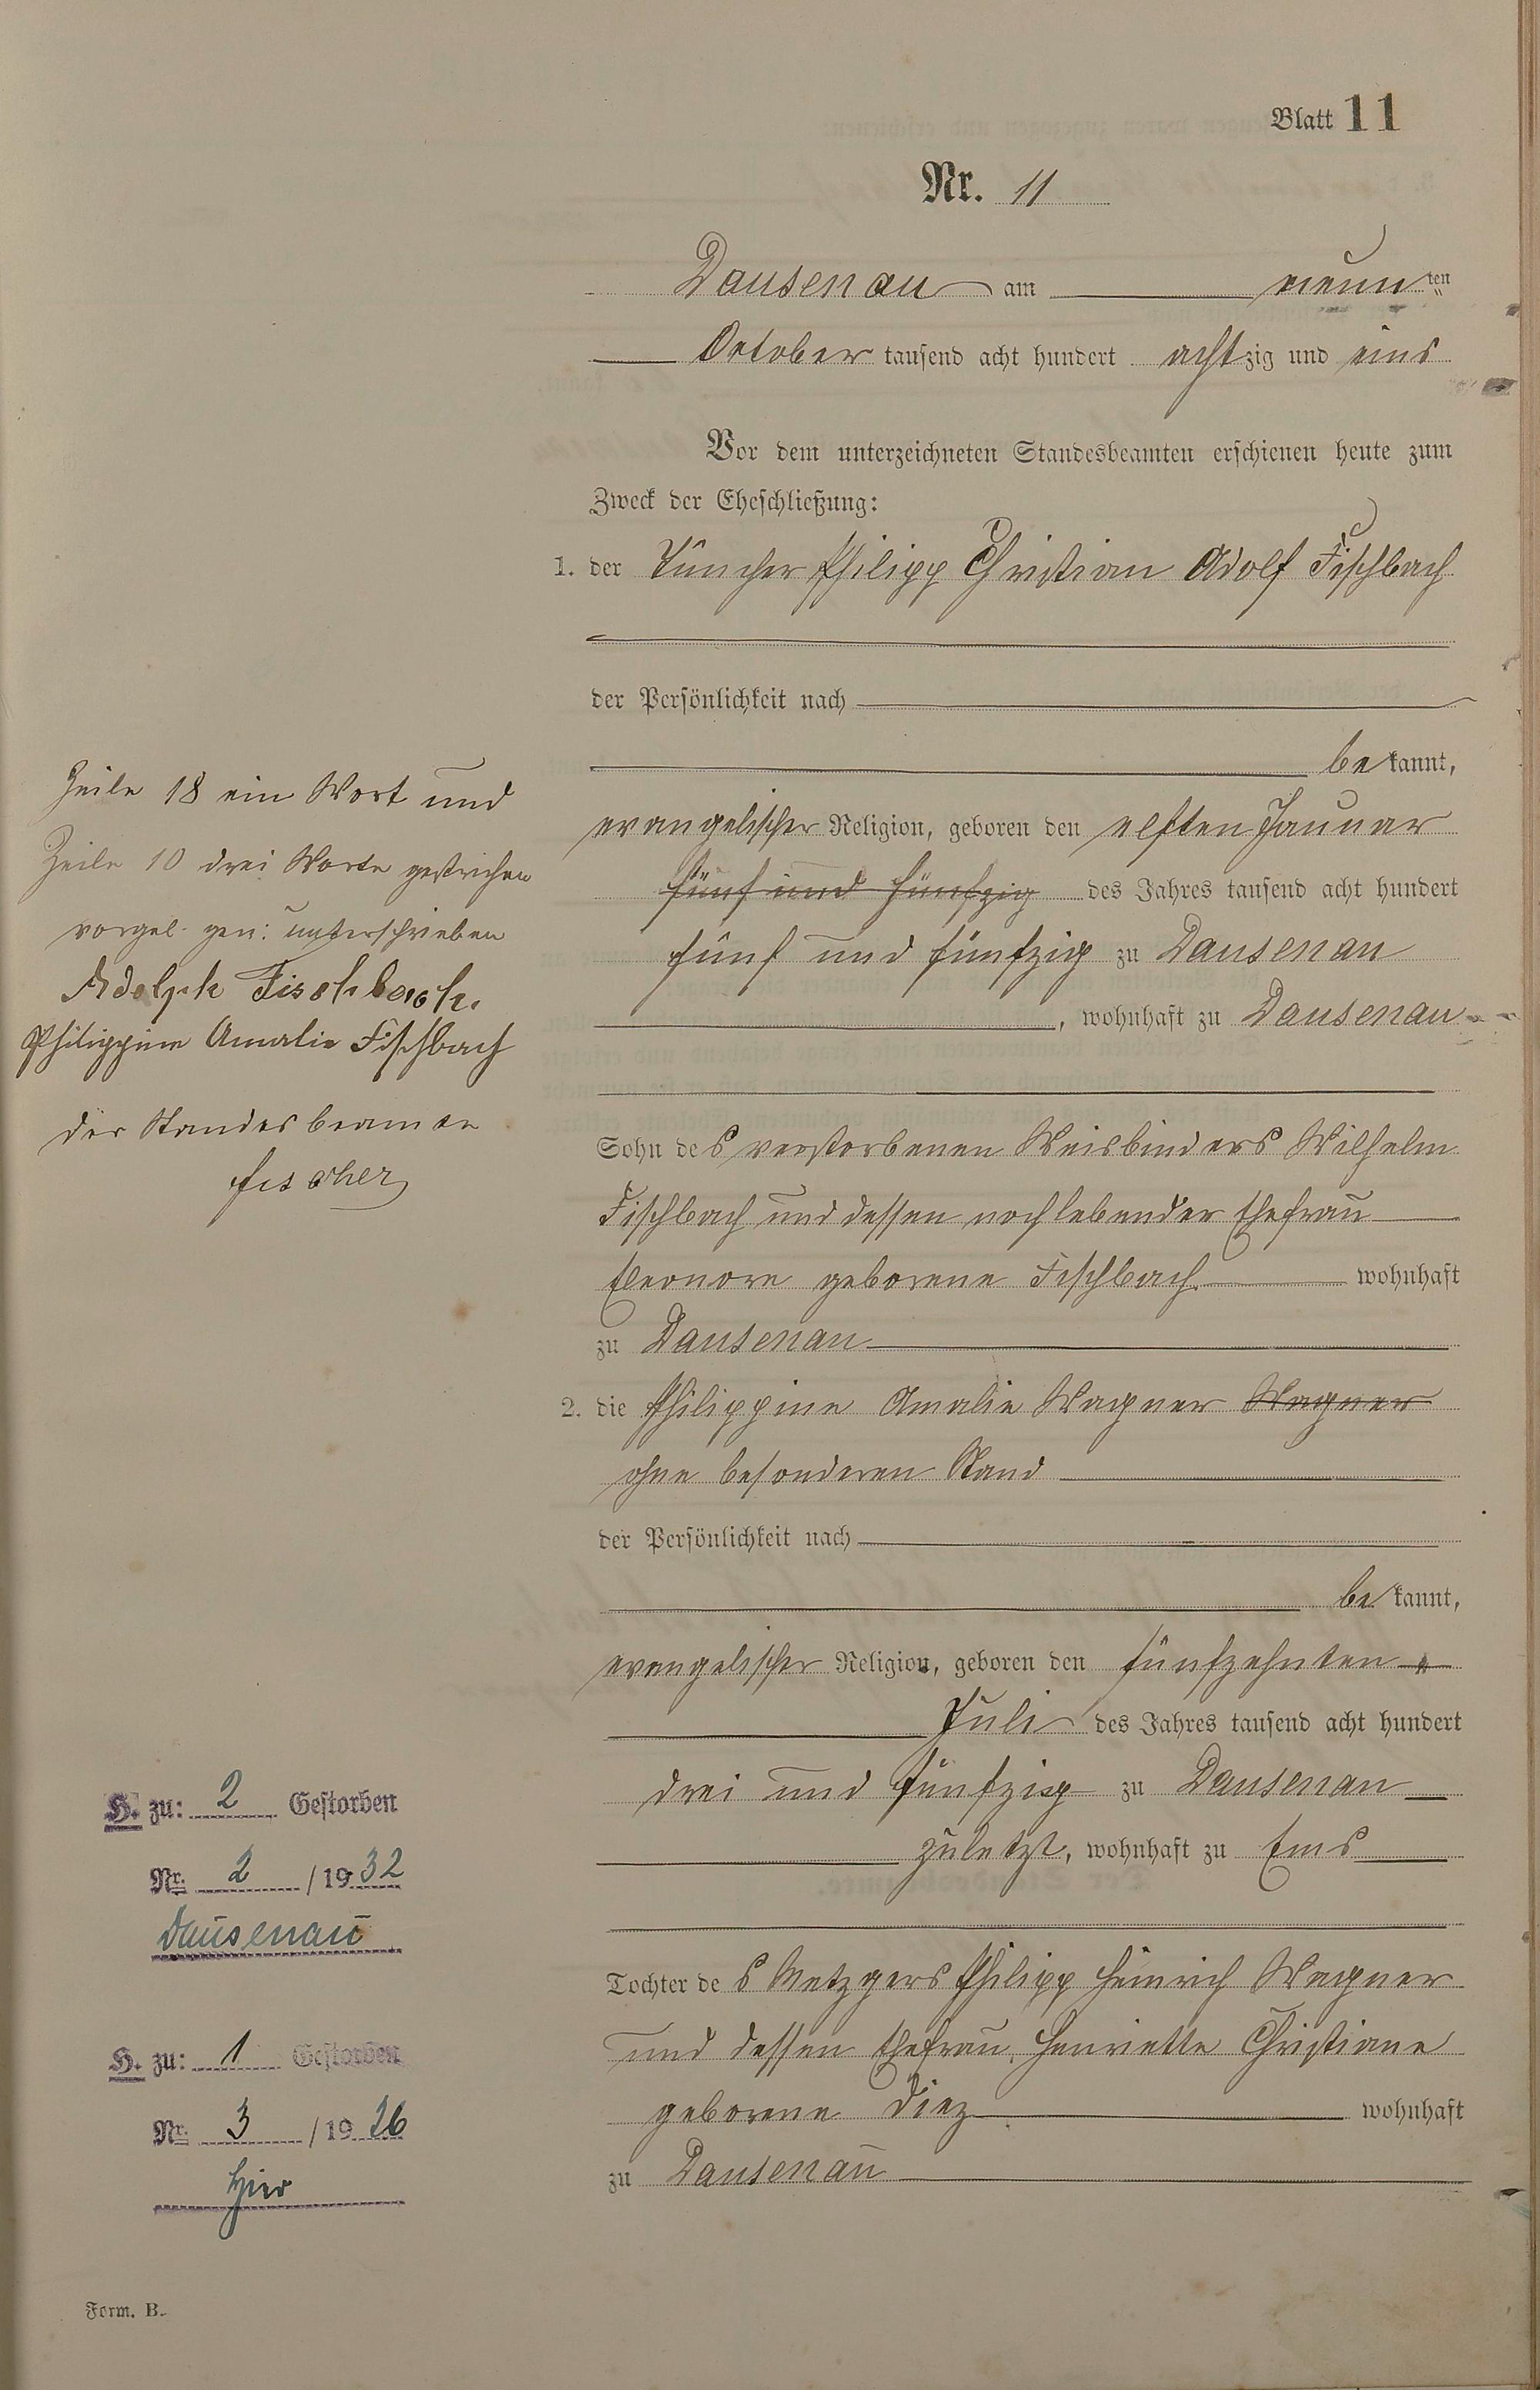 Blatt 11
Nr. 11
Dausenau am neunten
October tausend acht hundert achtzig und eins
Vor dem unterzeichneten Standesbeamten erschienen heute zum
Zweck der Eheschließung:
1. der Tüncher Philipp Christian Adolf Fischbach
der Persönlichkeit nach
bekannt,
evangelischer Religion, geboren den elften Januar
fünf und fünfzig des Jahres tausend acht hundert
fünf und fünfzig zu Dausenau
, wohnhaft zu Dausenau
Sohn des verstorbenen Weisbinders Wilhelm
Fischbach und dessen noch lebender Ehefrau
Eleonore geborene Fischbach wohnhaft
zu Dausenau
2. die Philippine Amalie Wagner Wagner
ohne besonderen Stand
der Persönlichkeit nach
bekannt,
evangelischer Religion, geboren den fünfzehnten
Juli des Jahres tausend acht hundert
drei und fünfzig zu Dausenau
zuletzt, wohnhaft zu Ems
Tochter des Metzgers Philipp Heinrich Wagner
und dessen Ehefrau Henriette Christiane
geborene Diez wohnhaft
zu Dausenau
Zeile 18 ein Wort und
Zeile 10 drei Worte gestrichen
vorgel. gen: unterschrieben
Adolph Fischbach.
Philippine Amalie Fischbach
Der Standesbeamte
Fischer
H. zu: 2 Gestorben
Nr. 2 / 1932
Dausenau
H. zu: 1 Gestorben
Nr. 3 / 1926
hier
Form. B.